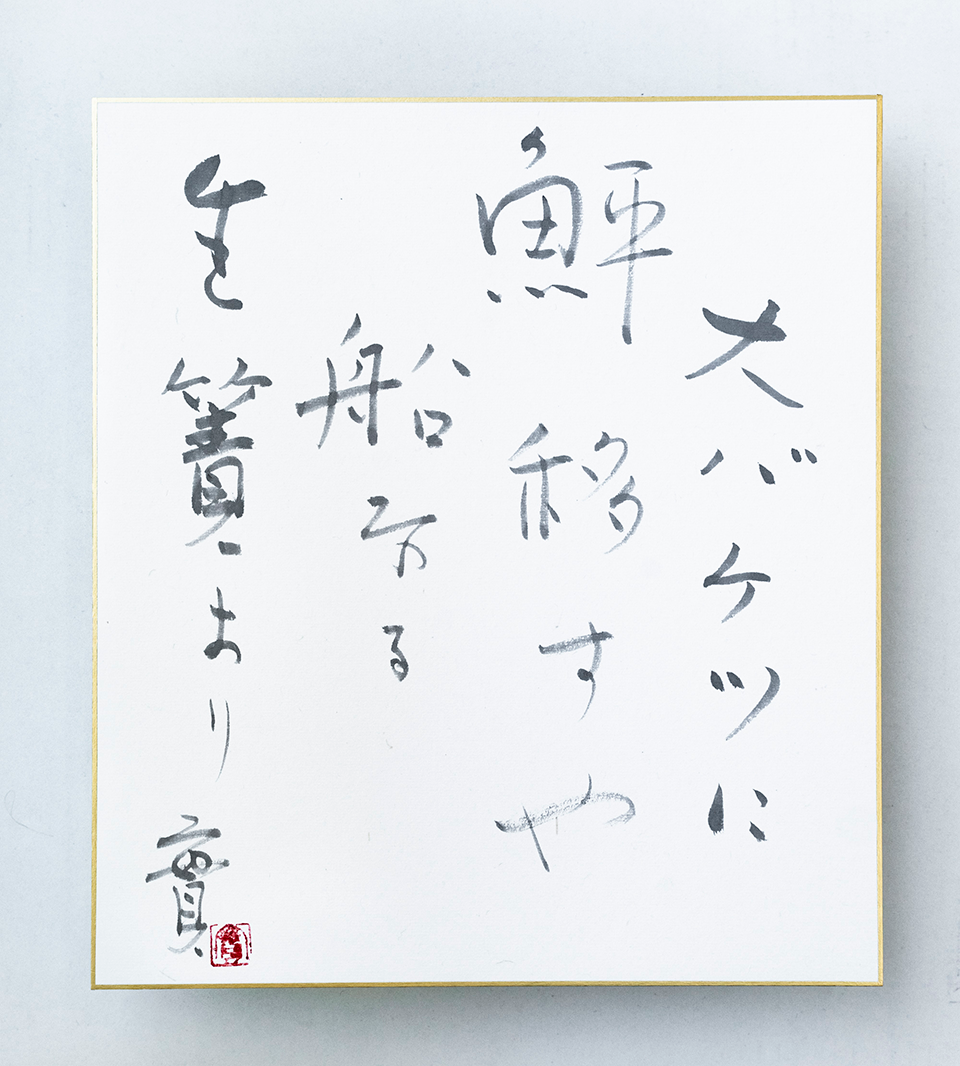 大バケツに
鮃移すや
船なる
生簀より
實